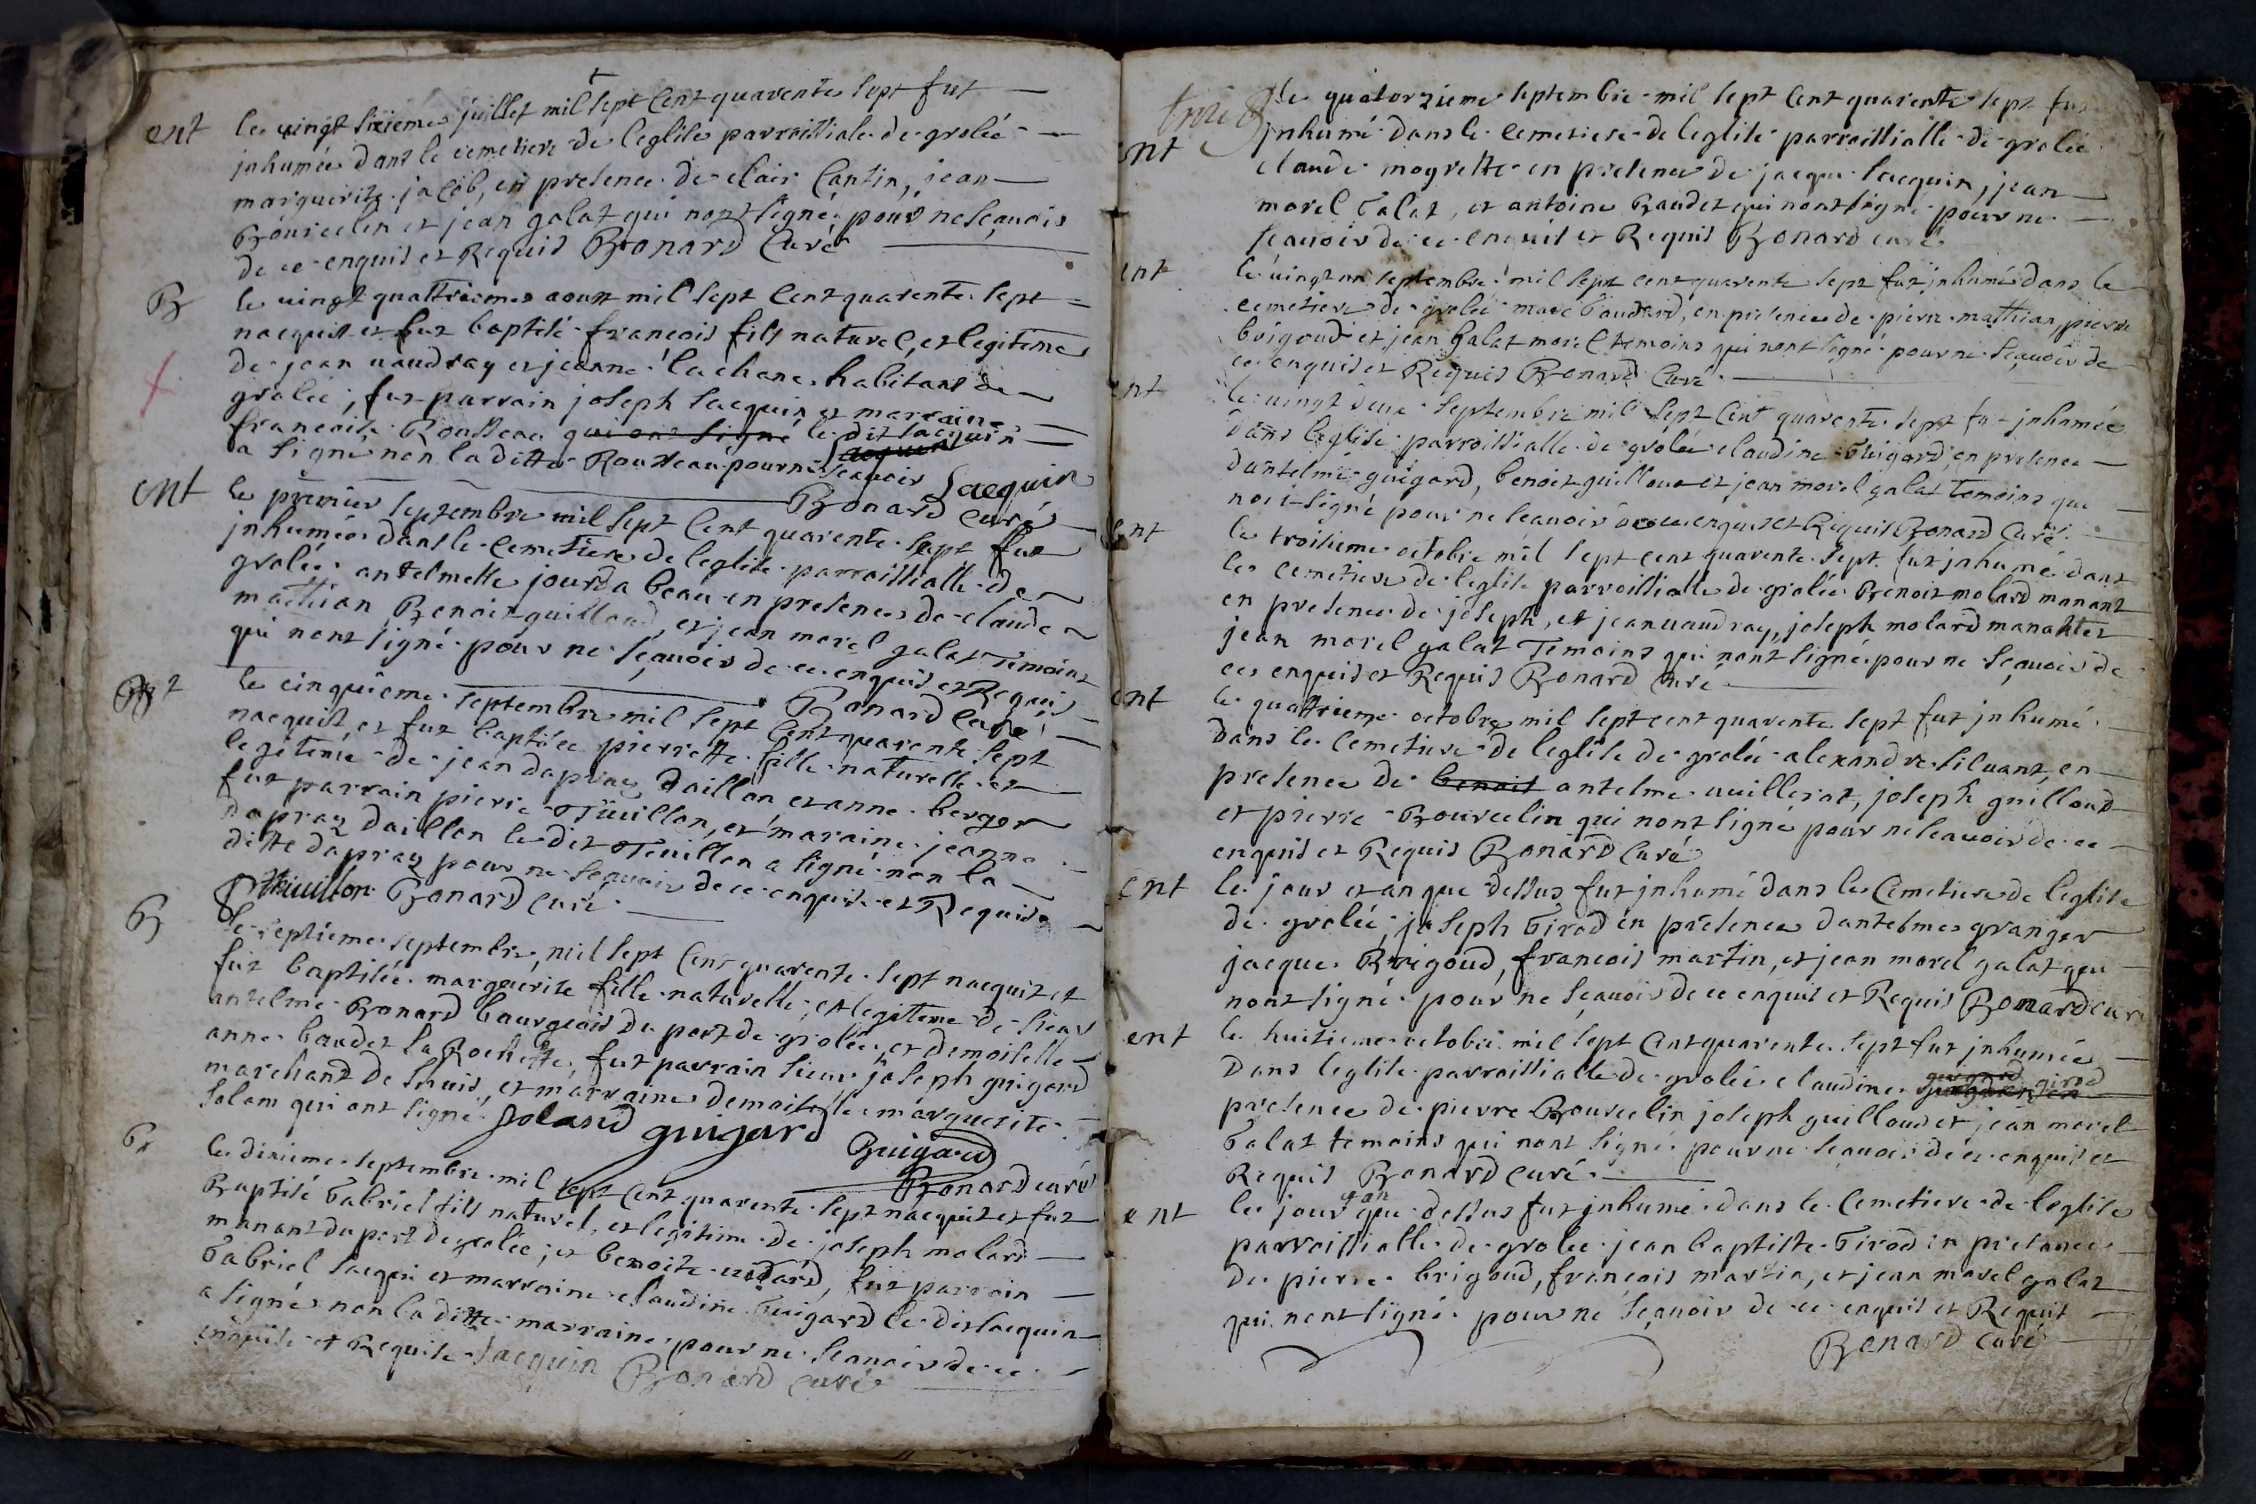 ent le vingt sixieme juillet mil sept Cent quarente sept fut
jnhumée dans le cemetiere de leglise parroissiale de grolée
marguerite jacob, en presence de clair Cantin, jean
Bourcelin et jean galat qui nont signé pour ne sçavoir
de ce enquis et Requis Bonard Curé
B le vingt quattrieme aoust mil sept Cent quarente sept
nacquit et fut baptisé francois fils naturel, et legitime
de jean vaudray et jeanne lachane habitans de
grolée, fut parrain joseph Jacquin et marraine
francoise Rousseau qui ont signé le dit jacquin
a signé non la ditte Rousseau pour ne sçavoir Jacquin
Bonard curé
ent le premier septembre mil sept Cent quarente sept fut
jnhumée dans le Cemetiere de leglise parroissialle de
grolée antelmette jourda beau en presence de claude
mathian Benoit guilloud, et jean morel galat Temoins
qui nont signé pour ne sçavoir de ce enquis et Requis
Bonard Curé
le cinquieme septembre mil sept Cent quarente sept
nacquit et fut baptisée pierrette fille naturelle et
legitime de jean dapraz daillon et anne berger
fut parrain pierre Tiuillon, et maraine jeanne
dapraz daillon le dit Tiuillon a signé non la
ditte dapraz pour ne sçavoir de ce enquise et Requise
P Thiuillon Bonard curé
B le septieme septembre, mil sept Cent quarente sept nacquit et
fut baptisée marguerite fille naturelle, et legitime de sieur
antelme Bonard bourgeois du port de grolée et demoiselle
anne baudet la Rochette, fut parrain sieur joseph guigard
marchand de lhuis, et marraine demoiselle marguerite
solam qui ont signé soland guigard Guigard
Bonard curé
B le dixieme septembre mil sept Cent quarente sept nacquit et fut
Baptisé Gabriel fils naturel, et legitime de joseph molard
manant du port de grolée, et benoite vidard, fut parrain
Gabriel Jacquin et marraine claudine Guigard le dit Jacquin
a signé non la ditte marraine pour ne sçavoir de ce
enquise et Requise Jacquin Bonard curé
ent le quatorzieme septembre mil sept Cent quarente sept fut
jnhumé dans le Cemetiere de leglise parroissialle de grolée
claude mogrette en presence de jacque Jacquin, jean
morel Galat, et antoine Baudet qui nont signé pour ne
sçavoir de ce enquis et Requis Bonard curé
ent le vingt un septembre mil sept cent quarente sept fut jnhumé dans le
cemetiere de grolée marc Gaudard, en presence de pierre mathian, pierre
brigoud et jean Galat morel temoins qui nont signé pour ne sçavoir de
ce enquis et Requis Bonard Curé
ent le vingt deux septembre mil sept Cent quarente sept fut jnhumée
dans leglise parroissialle de grolée claudine Guigard, en presence
dantelme guigard, benoit guilloud et jean morel galat temoins qui
nont signé pour ne scavoir de ce enquis et Requis Bonard Curé
ent le troisieme octobre mil sept cent quarente sept fut jnhumé dans
le cemetiere de leglise parroissialle de grolée Benoit molard manant
en presence de joseph, et jean vaudray, joseph molard manant et
jean morel galat Temoins qui nont signé pour ne sçavoir de
ce enquis et Requis Bonard Curé
ent le quattrieme octobre mil sept cent quarente sept fut jnhumé
dans le Cemetiere de leglise de grolée alexandre siluant, en
presence de benoit antelme vuillerot, joseph guilloud
et pierre Bourcelin qui nont signé pour ne scavoir de ce
enquis et Requis Bonard Curé
ent le jour et an que dessus fut jnhumé dans le Cemetiere de leglise
de grolée, joseph Girod en presence dantelme granger
jacque Brigoud, francois martin, et jean morel galat qui
nont signé pour ne sçavoir de ce enquis et Requis Bonard curé
ent le huitieme octobre mil sept Cent quarente sept fut jnhumée
dans leglise parroissialle de grolée claudine guigard girod en
presence de pierre Bourcelin joseph guilloud et jean morel
Galat temoins qui nont signé pour ne sçavoir de ce enquis et
Requis Bonard Curé
ent le jour et an que dessus fut jnhumé dans le Cemetiere de leglise
parroissialle de grolée jean baptiste Girod en presance
de pierre brigoud, francois martin, et jean morel galat
qui nont signé pour ne sçavoir de ce enquis et Requis
Bonard Curé